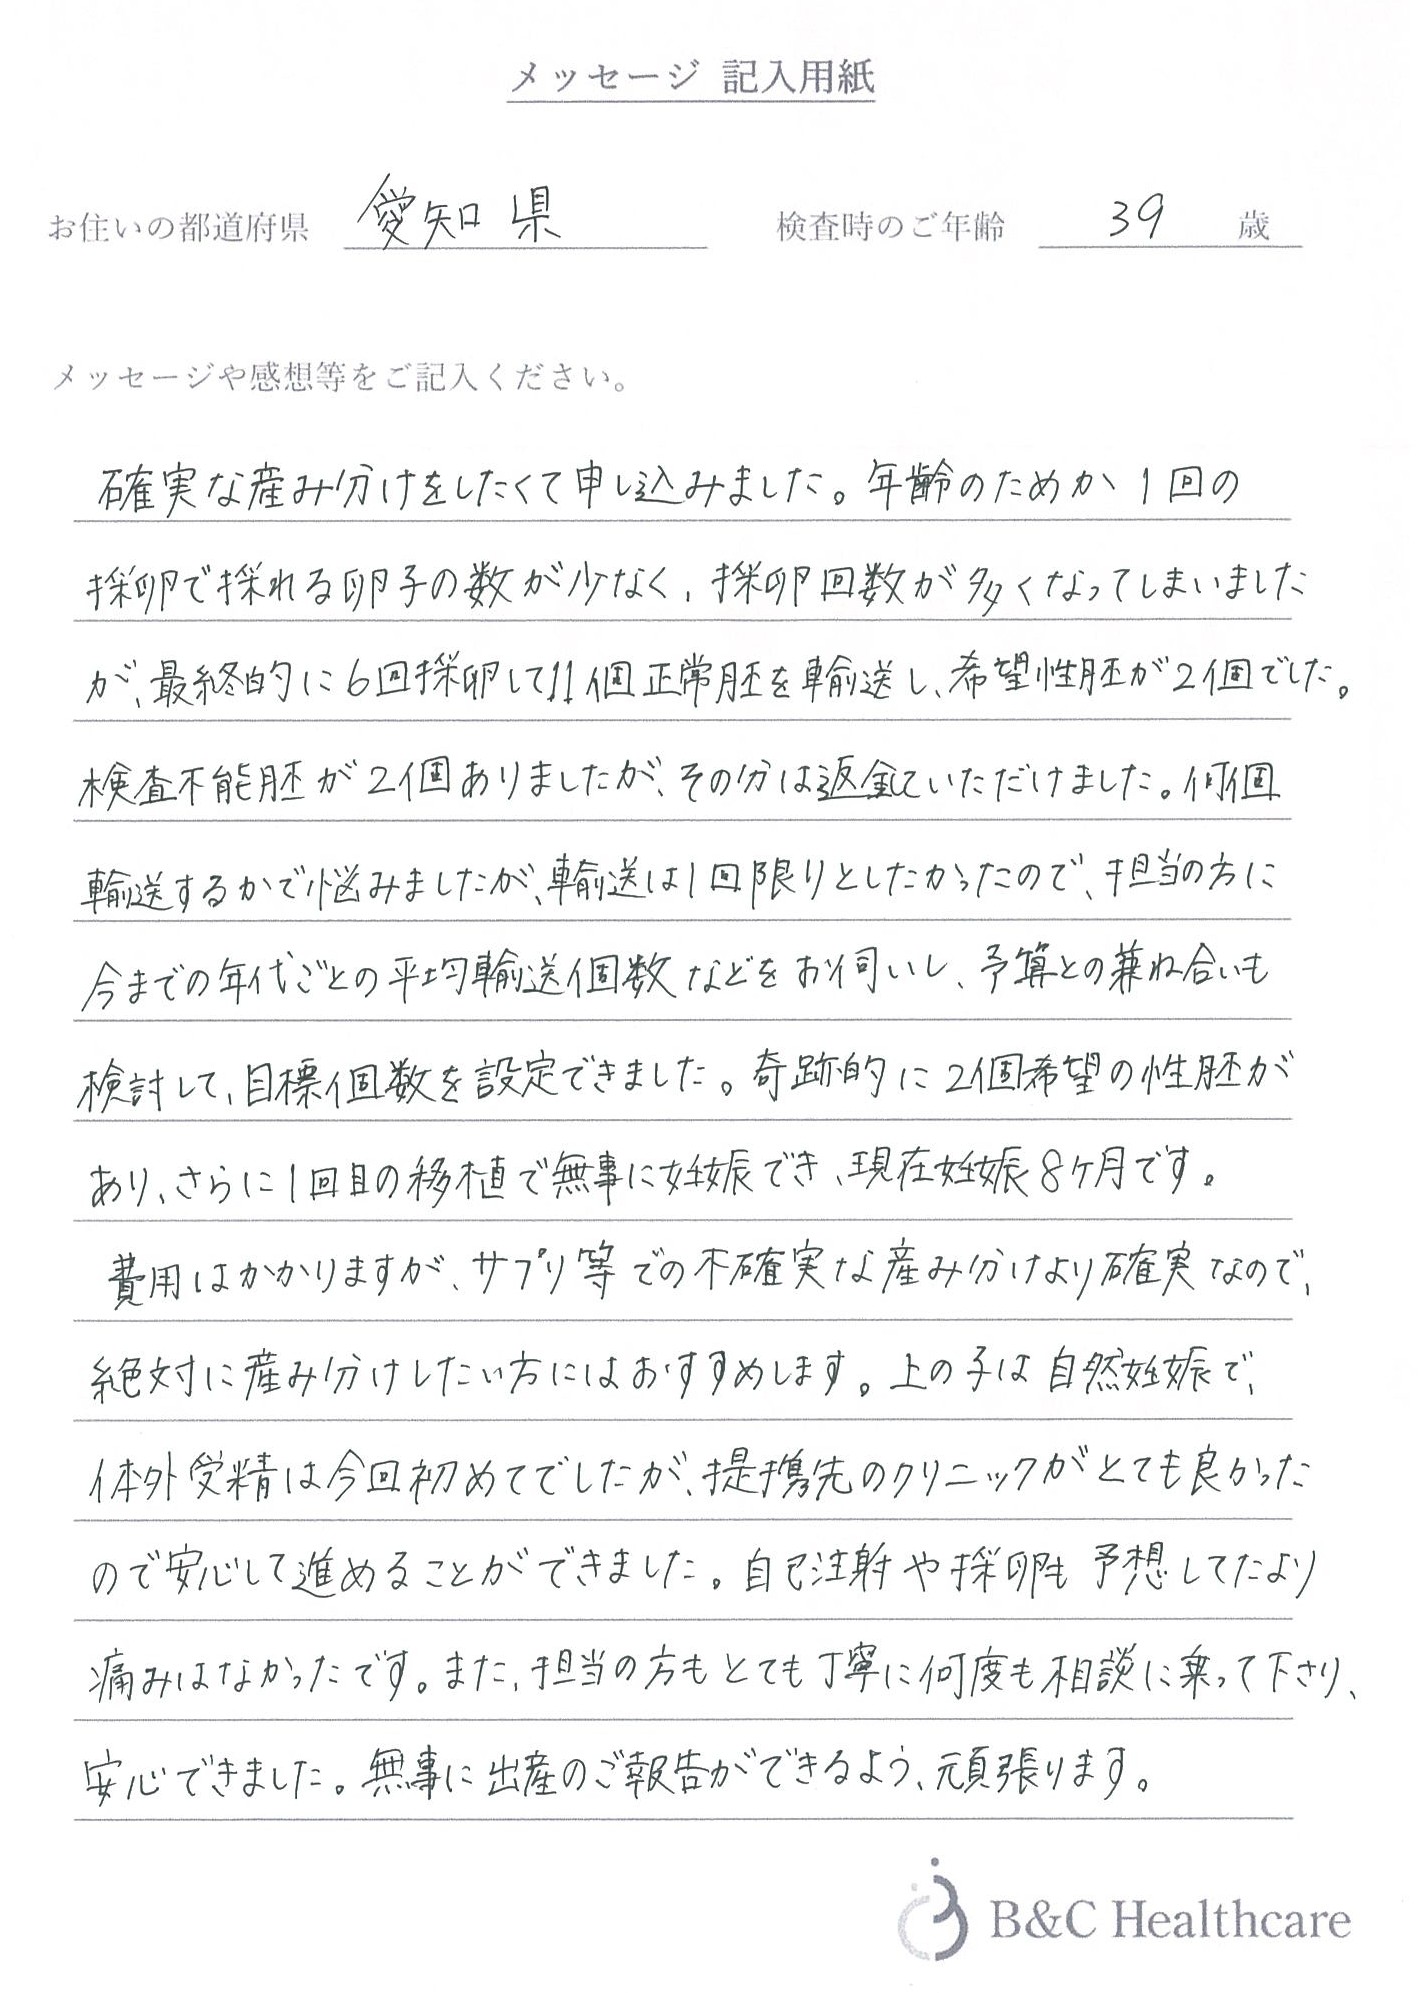 メッセージ 記入用紙
お住いの都道府県 愛知県 検査時のご年齢 39 歳
メッセージや感想等をご記入ください。
確実な産み分けをしたくて申し込みました。年齢のためか1回の
採卵で採れる卵子の数が少なく、採卵回数が多くなってしまいました
が、最終的に6回採卵して11個正常胚を輸送し、希望性胚が2個でした。
検査不能胚が2個ありましたが、その分は返金していただけました。何個
輸送するかで悩みましたが、輸送は1回限りとしたかったので、担当の方に
今までの年代ごとの平均輸送個数などをお伺いし、予算との兼ね合いも
検討して、目標個数を設定できました。奇跡的に2個希望の性胚が
あり、さらに1回目の移植で無事に妊娠でき、現在妊娠8ヶ月です。
費用はかかりますが、サプリ等での不確実な産み分けより確実なので、
絶対に産み分けしたい方にはおすすめします。上の子は自然妊娠で、
体外受精は今回初めてでしたが、提携先のクリニックがとても良かった
ので安心して進めることができました。自己注射や採卵も予想してたより
痛みはなかったです。また、担当の方もとても丁寧に何度も相談に乗って下さり、
安心できました。無事に出産のご報告ができるよう、頑張ります。
B&C Healthcare